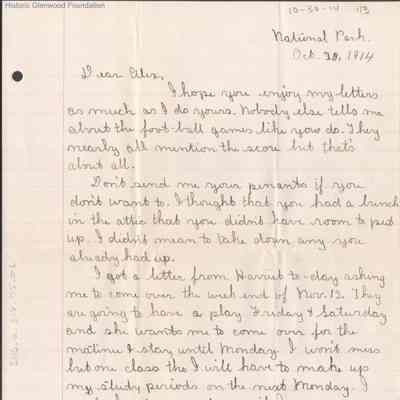 Historic Glenwood Foundation
10-30-14
National Park.
Oct. 30, 1914
Dear
I hope you enjoy my letters
as much as I do yours. Nobody else tells me
about the foot-ball games like you do. They
nearly all mention the score but that's
about all.
Don't send me your penants if you
don't want to. I thought that you had a bunch
in the attic that you didn't have room to put
up. I didn't mean to take down any you
already had up.
I got a letter from Harriet to-day asking
me to come over the week end of Nov. 13. They
are going to have a play Friday & Saturday
and she wants me to come over for the
matinee & stay until Monday. I won't miss
but one class tho I will have to make up
my study periods on the next Monday. I